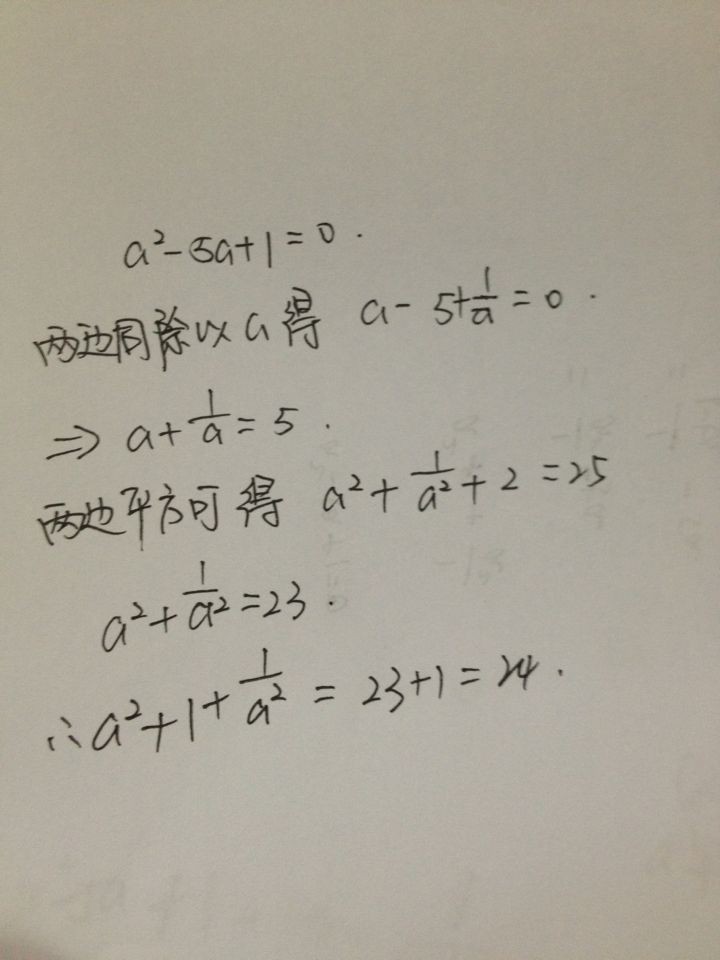 a²-5a+1=0.
两边同除以a得 a-5+1/a=0.
⇒ a+1/a=5.
两边平方可得 a²+1/a²+2=25
a²+1/a²=23.
∴a²+1+1/a²=23+1=24.